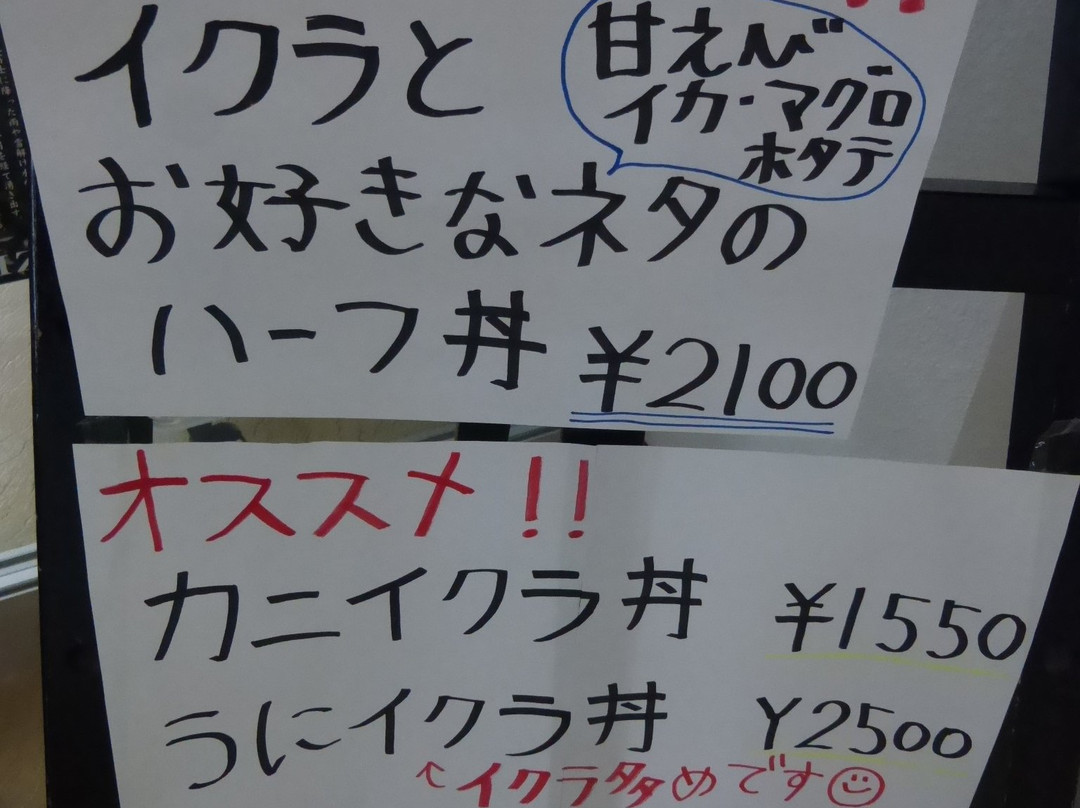 イクラと
甘えび
イカ・マグロ
ホタテ
お好きなネタの
ハーフ丼 ¥2100
オススメ!!
カニイクラ丼 ¥1550
うにイクラ丼 ¥2500
↖イクラ多めです☺